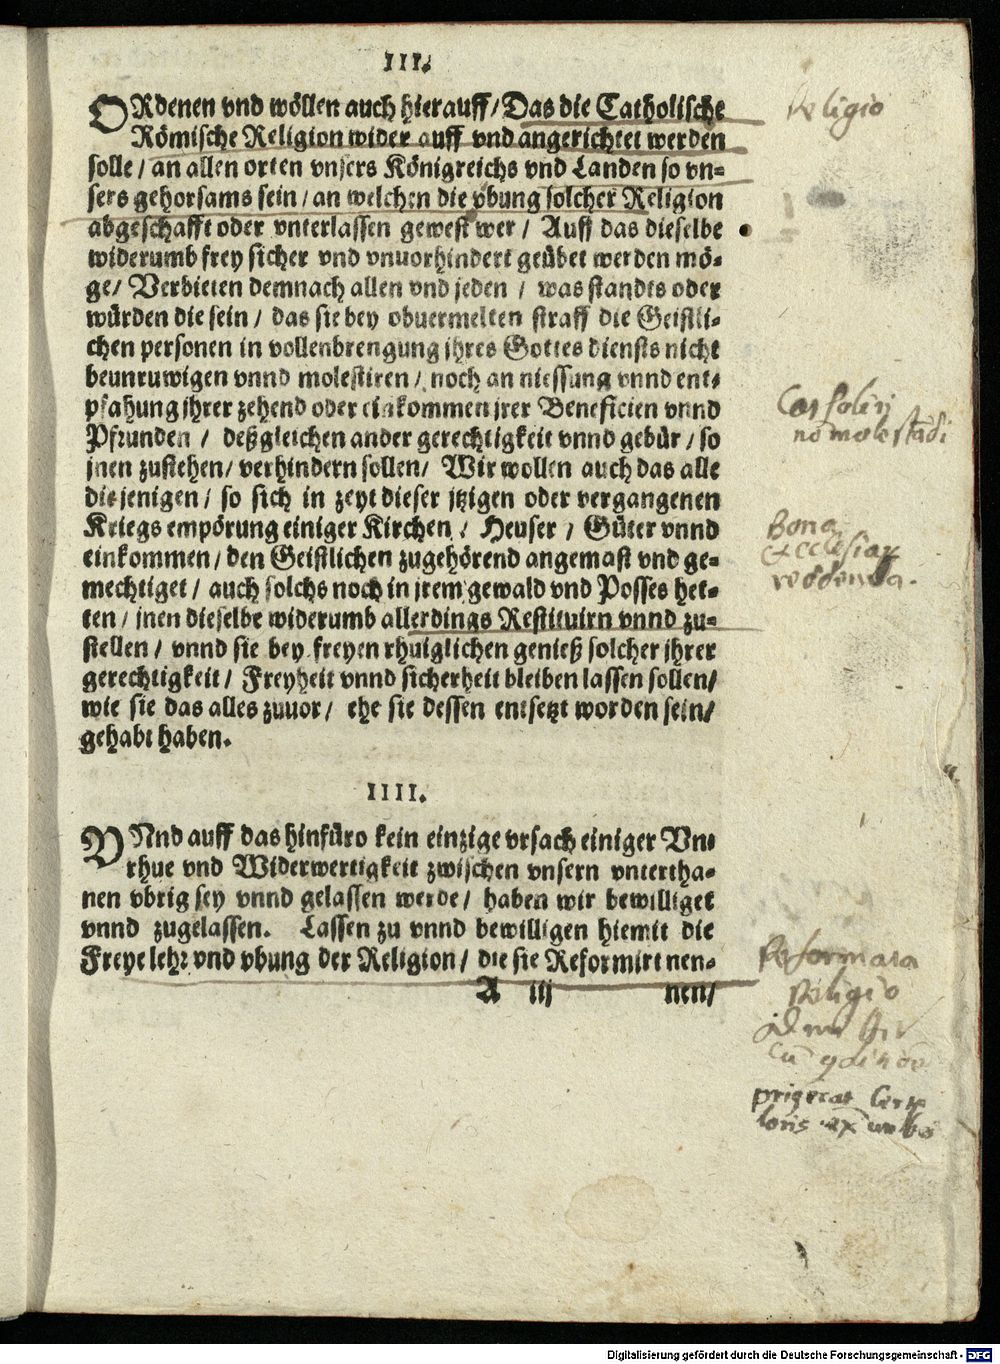 III.
ORdenen vnd wöllen auch hierauff/ Das die Catholische
Römische Religion wider auff vnd angerichtet werden
solle/ an allen orten vnsers Königreichs vnd Landen so vn=
sers gehorsams sein/ an welchen die vbung solcher Religion
abgeschafft oder vnterlassen gewest wer/ Auff das dieselbe
widerumb frey sicher vnd vnuorhindert geübet werden mö=
ge/ Verbieten demnach allen vnd jeden/ was standts oder
würden die sein/ das sie bey obuermelten straff die Geistli=
chen personen in vollenbrengung jhres Gottes diensts nicht
beunruwigen vnnd molestiren/ noch an niessung vnnd ent=
pfahung jhrer zehend oder einkommen jrer Beneficien vnnd
Pfrunden/ deßgleichen ander gerechtigkeit vnnd gebür/ so
jnen zustehen/ verhindern sollen/ Wir wollen auch das alle
diejenigen/ so sich in zeyt dieser jtzigen oder vergangenen
Kriegs empörung einiger Kirchen/ Heuser/ Güter vnnd
einkommen/ den Geistlichen zugehörend angemast vnd ge=
mechtiget/ auch solchs noch in jrem gewald vnd Posses het=
ten/ jnen dieselbe widerumb allerdings Restituirn vnnd zu=
stellen/ vnnd sie bey freyen rhuiglichen genieß solcher jhrer
gerechtigkeit/ Freyheit vnnd sicherheit bleiben lassen sollen/
wie sie das alles zuuor/ ehe sie dessen entsetzt worden sein/
gehabt haben.
IIII.
VNnd auff das hinfüro kein einzige vrsach einiger Vn=
rhue vnd Widerwertigkeit zwischen vnsern vntertha=
nen vbrig sey vnnd gelassen werde/ haben wir bewilliget
vnnd zugelassen. Lassen zu vnnd bewilligen hiemit die
Freye lehr vnd vbung der Religion/ die sie Reformirt nen=
A iij nen/
Religio
molestādi
Bona
Ecclesiar
reddenda.
Reformata
Religio
Digitalisierung gefördert durch die Deutsche Forschungsgemeinschaft - DFG